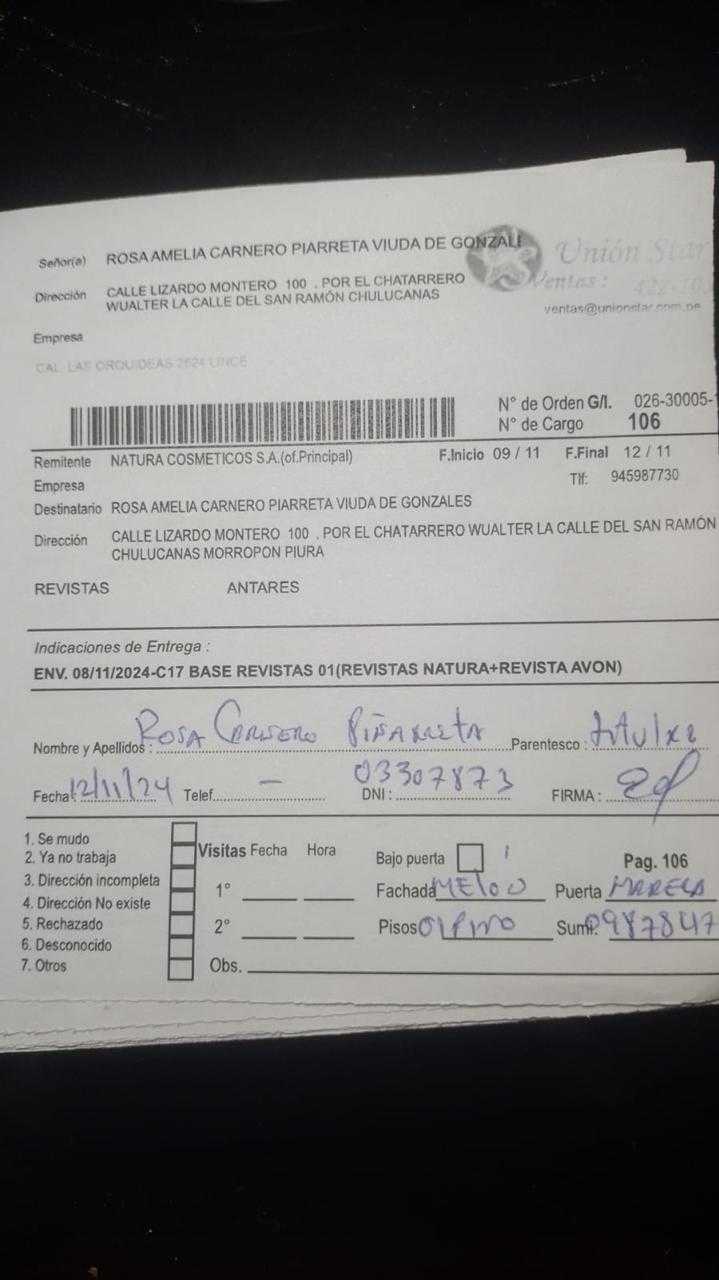 Señor(a) ROSA AMELIA CARNERO PIARRETA VIUDA DE GONZALE
Unión Star
Dirección CALLE LIZARDO MONTERO 100 , POR EL CHATARRERO
WUALTER LA CALLE DEL SAN RAMÓN CHULUCANAS
Ventas:
ventas@unionstar.com.pe
Empresa
CAL. LAS ORQUIDEAS 2624 LINCE
N° de Orden G/I. 026-30005-1
N° de Cargo 106
Remitente NATURA COSMETICOS S.A.(of.Principal) F.Inicio 09 / 11 F.Final 12 / 11
Empresa Tlf: 945987730
Destinatario ROSA AMELIA CARNERO PIARRETA VIUDA DE GONZALES
Dirección CALLE LIZARDO MONTERO 100 , POR EL CHATARRERO WUALTER LA CALLE DEL SAN RAMÓN
CHULUCANAS MORROPON PIURA
REVISTAS ANTARES
Indicaciones de Entrega :
ENV. 08/11/2024-C17 BASE REVISTAS 01(REVISTAS NATURA+REVISTA AVON)
Nombre y Apellidos : ROSA CARNERO PIÑARRETA Parentesco :
Fecha 12/11/24 Telef. – DNI : 03307873 FIRMA :
1. Se mudo
2. Ya no trabaja
3. Dirección incompleta
4. Dirección No existe
5. Rechazado
6. Desconocido
7. Otros
Visitas Fecha Hora
1°
2°
Obs.
Bajo puerta Pag. 106
Fachada Puerta
Pisos Sum. 0987847